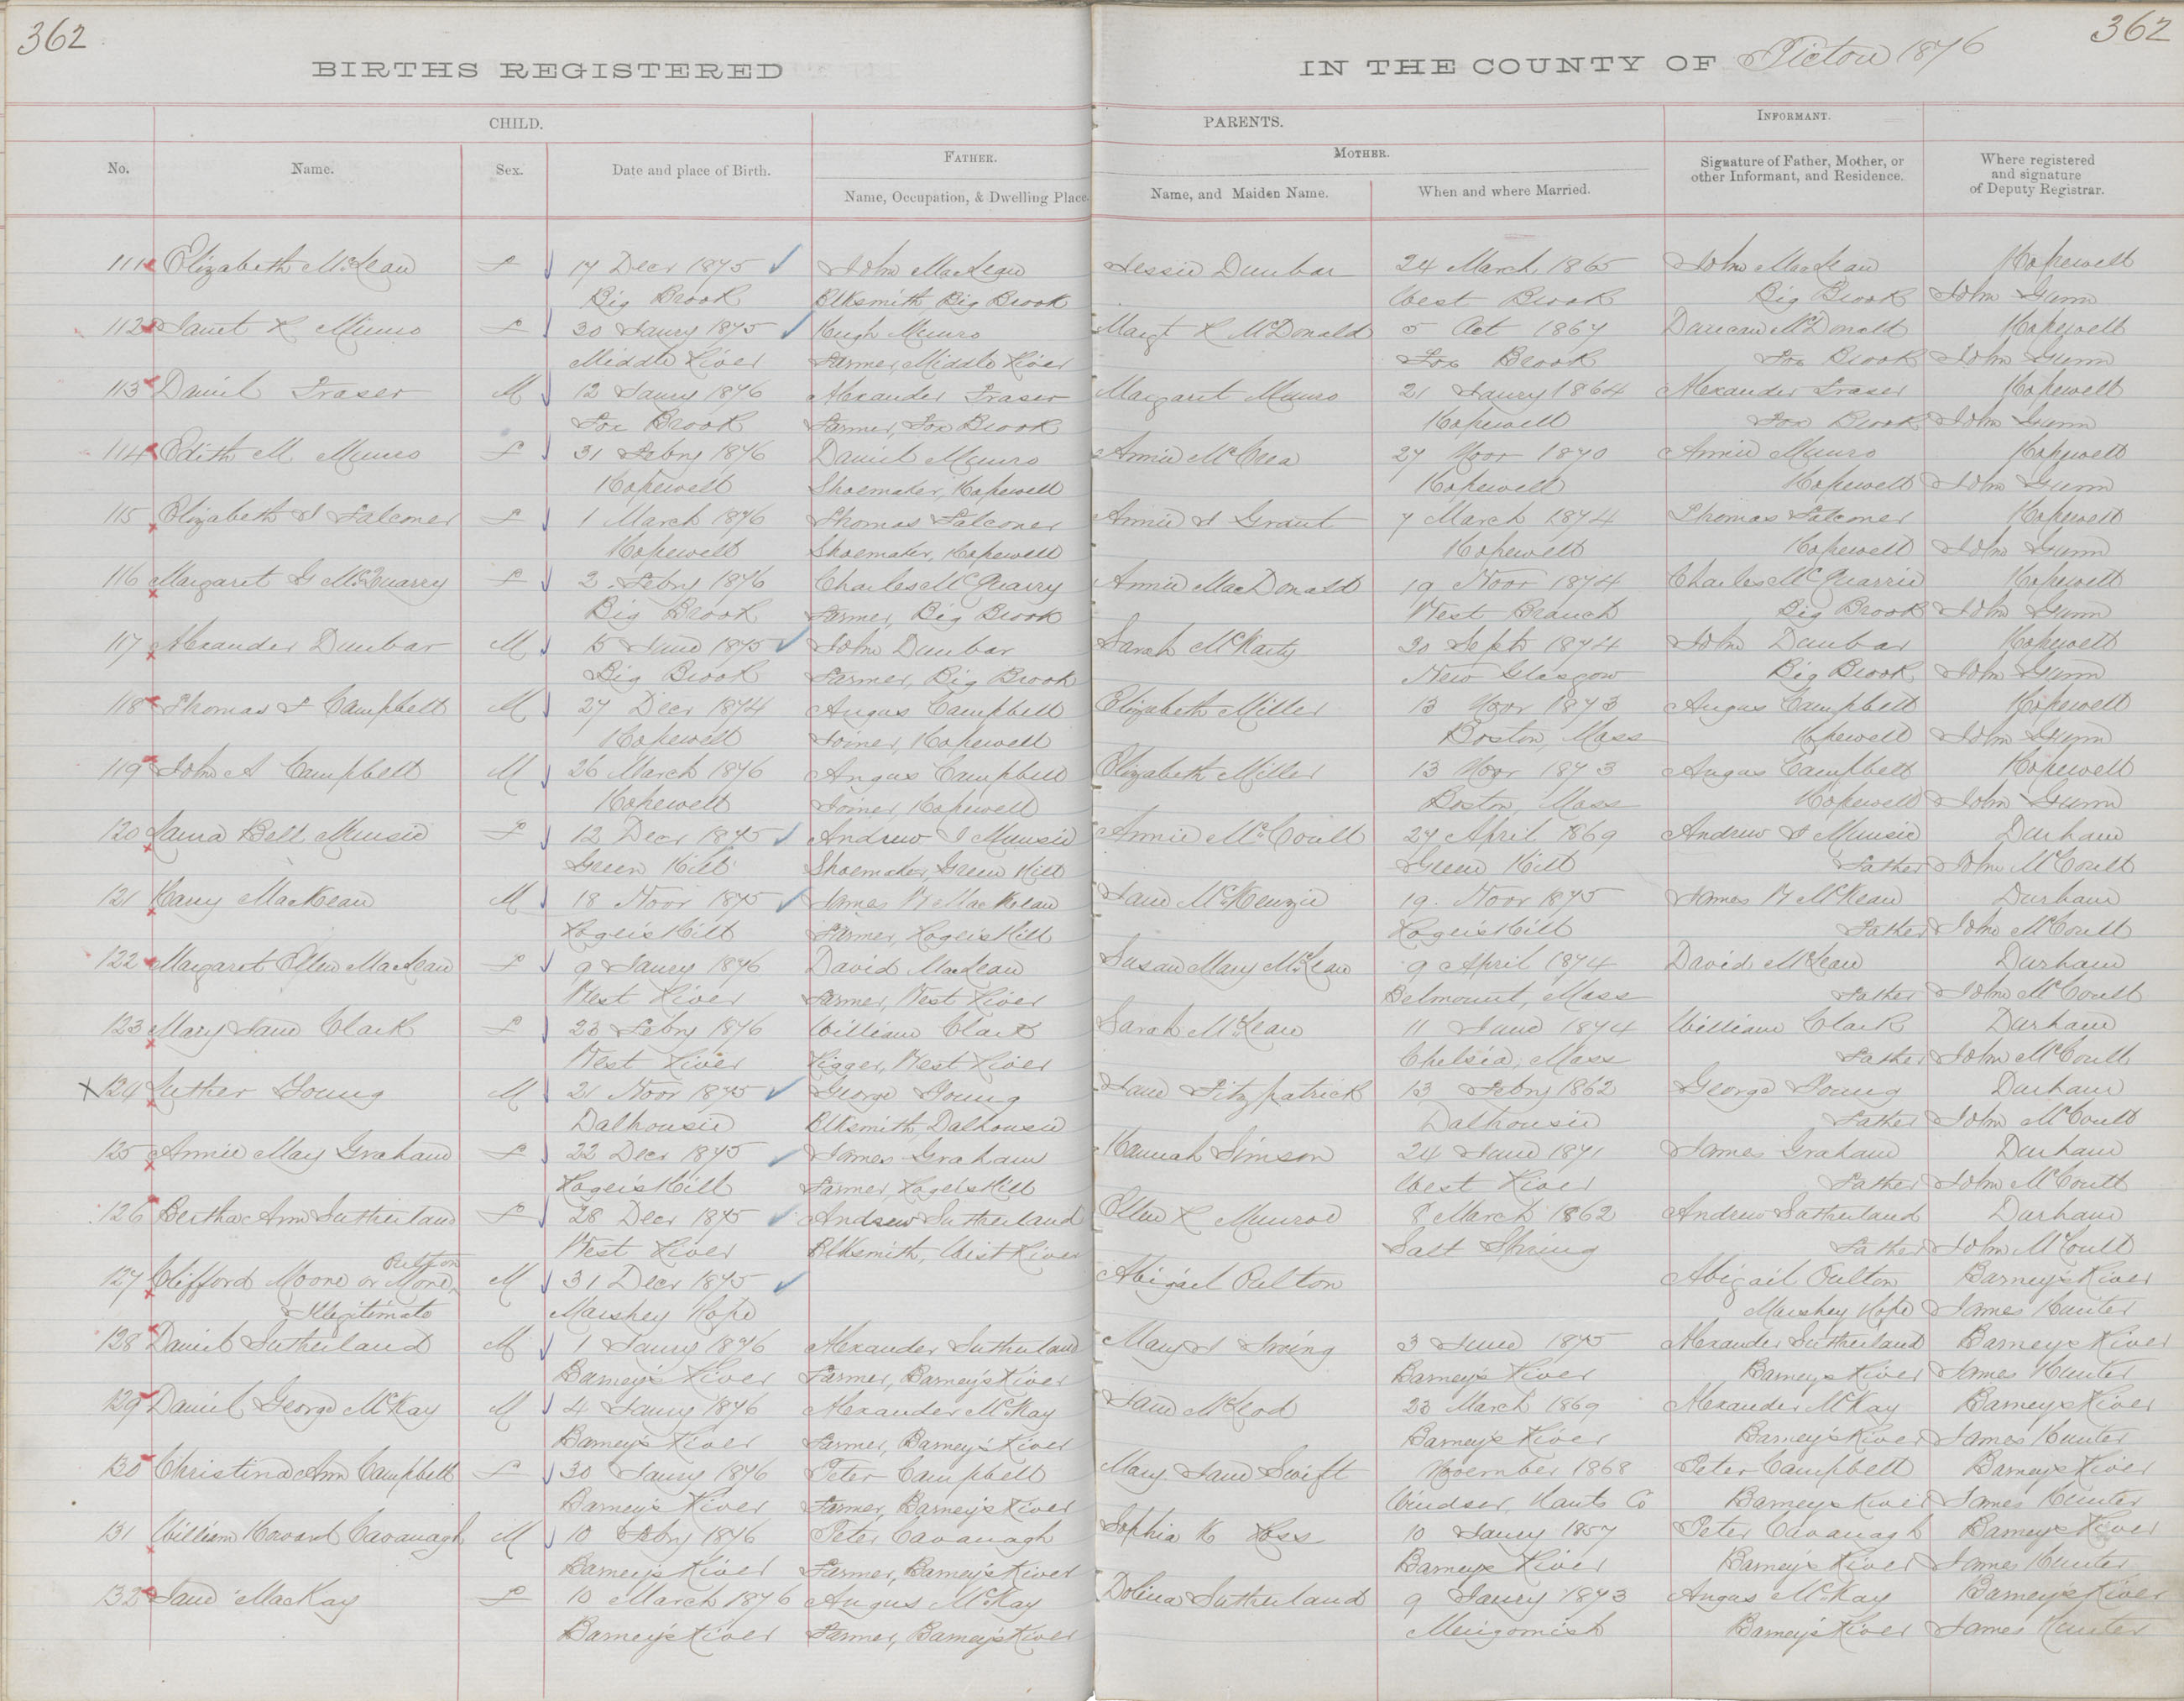 362
362
BIRTHS REGISTERED
IN THE COUNTY OF Pictou 1876
CHILD.
PARENTS.
INFORMANT.
No.
Name.
Sex.
Date and place of Birth.
FATHER.
Name, Occupation, & Dwelling Place.
MOTHER.
Name, and Maiden Name.
When and where Married.
Signature of Father, Mother, or other Informant, and Residence.
Where registered and signature of Deputy Registrar.
111 Elizabeth McLean F 17 Decr 1875 John MacLean Jessie Dunbar 24 March 1865 John MacLean Hopewell
Big Brook Blksmith, Big Brook West Brook Big Brook John Gunn
112 Janet R Munro F 30 Jany 1875 Hugh Munro Margt R McDonald 5 Oct 1867 Duncan McDonald Hopewell
Middle River Farmer, Middle River Fox Brook Fox Brook John Gunn
113 Daniel Fraser M 12 Jany 1876 Alexander Fraser Margaret Munro 21 Jany 1864 Alexander Fraser Hopewell
Fox Brook Farmer, Fox Brook Hopewell Fox Brook John Gunn
114 Edith M Munro F 31 Febry 1876 Daniel Munro Annie McCrea 27 Novr 1870 Annie Munro Hopewell
Hopewell Shoemaker, Hopewell Hopewell Hopewell John Gunn
115 Elizabeth J Falconer F 1 March 1876 Thomas Falconer Annie J Grant 7 March 1874 Thomas Falconer Hopewell
Hopewell Shoemaker, Hopewell Hopewell Hopewell John Gunn
116 Margaret G McQuarry F 2 Febry 1876 Charles McQuarry Annie MacDonald 19 Novr 1874 Charles McQuarrie Hopewell
Big Brook Farmer, Big Brook West Branch Big Brook John Gunn
117 Alexander Dunbar M 15 June 1875 John Dunbar Sarah McKarty 30 Septr 1874 John Dunbar Hopewell
Big Brook Farmer, Big Brook New Glasgow Big Brook John Gunn
118 Thomas F Campbell M 27 Decr 1874 Angus Campbell Elizabeth Miller 13 Novr 1873 Angus Campbell Hopewell
Hopewell Joiner, Hopewell Boston, Mass Hopewell John Gunn
119 John A Campbell M 26 March 1876 Angus Campbell Elizabeth Miller 13 Novr 1873 Angus Campbell Hopewell
Hopewell Joiner, Hopewell Boston, Mass Hopewell John Gunn
120 Laura Bell Munsie F 12 Decr 1875 Andrew J Munsie Annie McCoull 27 April 1869 Andrew J Munsie Durham
Green Hill Shoemaker, Green Hill Green Hill Father John McCoull
121 Harry MacKean M 18 Novr 1875 James W MacKean Jane McKenzie 19 Novr 1875 James W McKean Durham
Rogers Hill Farmer, Rogers Hill Rogers Hill Father John McCoull
122 Margaret Ellen MacLean F 9 Jany 1876 David MacLean Susan Mary McLean 9 April 1874 David McLean Durham
West River Farmer, West River Belmount, Mass Father John McCoull
123 Mary Jane Clark F 23 Febry 1876 William Clark Sarah McLean 11 June 1874 William Clark Durham
West River Rigger, West River Chelsia, Mass Father John McCoull
X 124 Luther Young M 21 Novr 1875 George Young Jane Fitzpatrick 13 Febry 1862 George Young Durham
Dalhousie Blksmith, Dalhousie Dalhousie Father John McCoull
125 Annie May Graham F 22 Decr 1875 James Graham Hannah Simson 24 June 1871 James Graham Durham
Rogers Hill Farmer, Rogers Hill West River Father John McCoull
126 Bertha Ann Sutherland F 28 Decr 1875 Andrew Sutherland Ellen R Munroe 8 March 1862 Andrew Sutherland Durham
West River Blksmith, West River Salt Spring Father John McCoull
Pulton
127 Clifford Moone or Mone M 31 Decr 1875 Abigail Pulton Abigail Pulton Barney's River
Illegitimate Marshey Hope Marshey Hope James Hunter
128 Daniel Sutherland M 1 Jany 1876 Alexander Sutherland Mary J Irving 3 June 1875 Alexander Sutherland Barney's River
Barney's River Farmer, Barney's River Barney's River Barney's River James Hunter
129 Daniel George McKay M 4 Jany 1876 Alexander McKay Jane McLeod 23 March 1869 Alexander McKay Barney's River
Barney's River Farmer, Barney's River Barney's River Barney's River James Hunter
130 Christina Ann Campbell F 30 Jany 1876 Peter Campbell Mary Jane Swift November 1868 Peter Campbell Barney's River
Barney's River Farmer, Barney's River Windsor, Hants Co Barney's River James Hunter
131 William Howard Cavanagh M 10 Febry 1876 Peter Cavanagh Sophia K Ross 10 Jany 1857 Peter Cavanagh Barney's River
Barney's River Farmer, Barney's River Barney's River Barney's River James Hunter
132 Jane MacKay F 10 March 1876 Angus McKay Dolina Sutherland 9 Jany 1873 Angus McKay Barney's River
Barney's River Farmer, Barney's River Merigomish Barney's River James Hunter